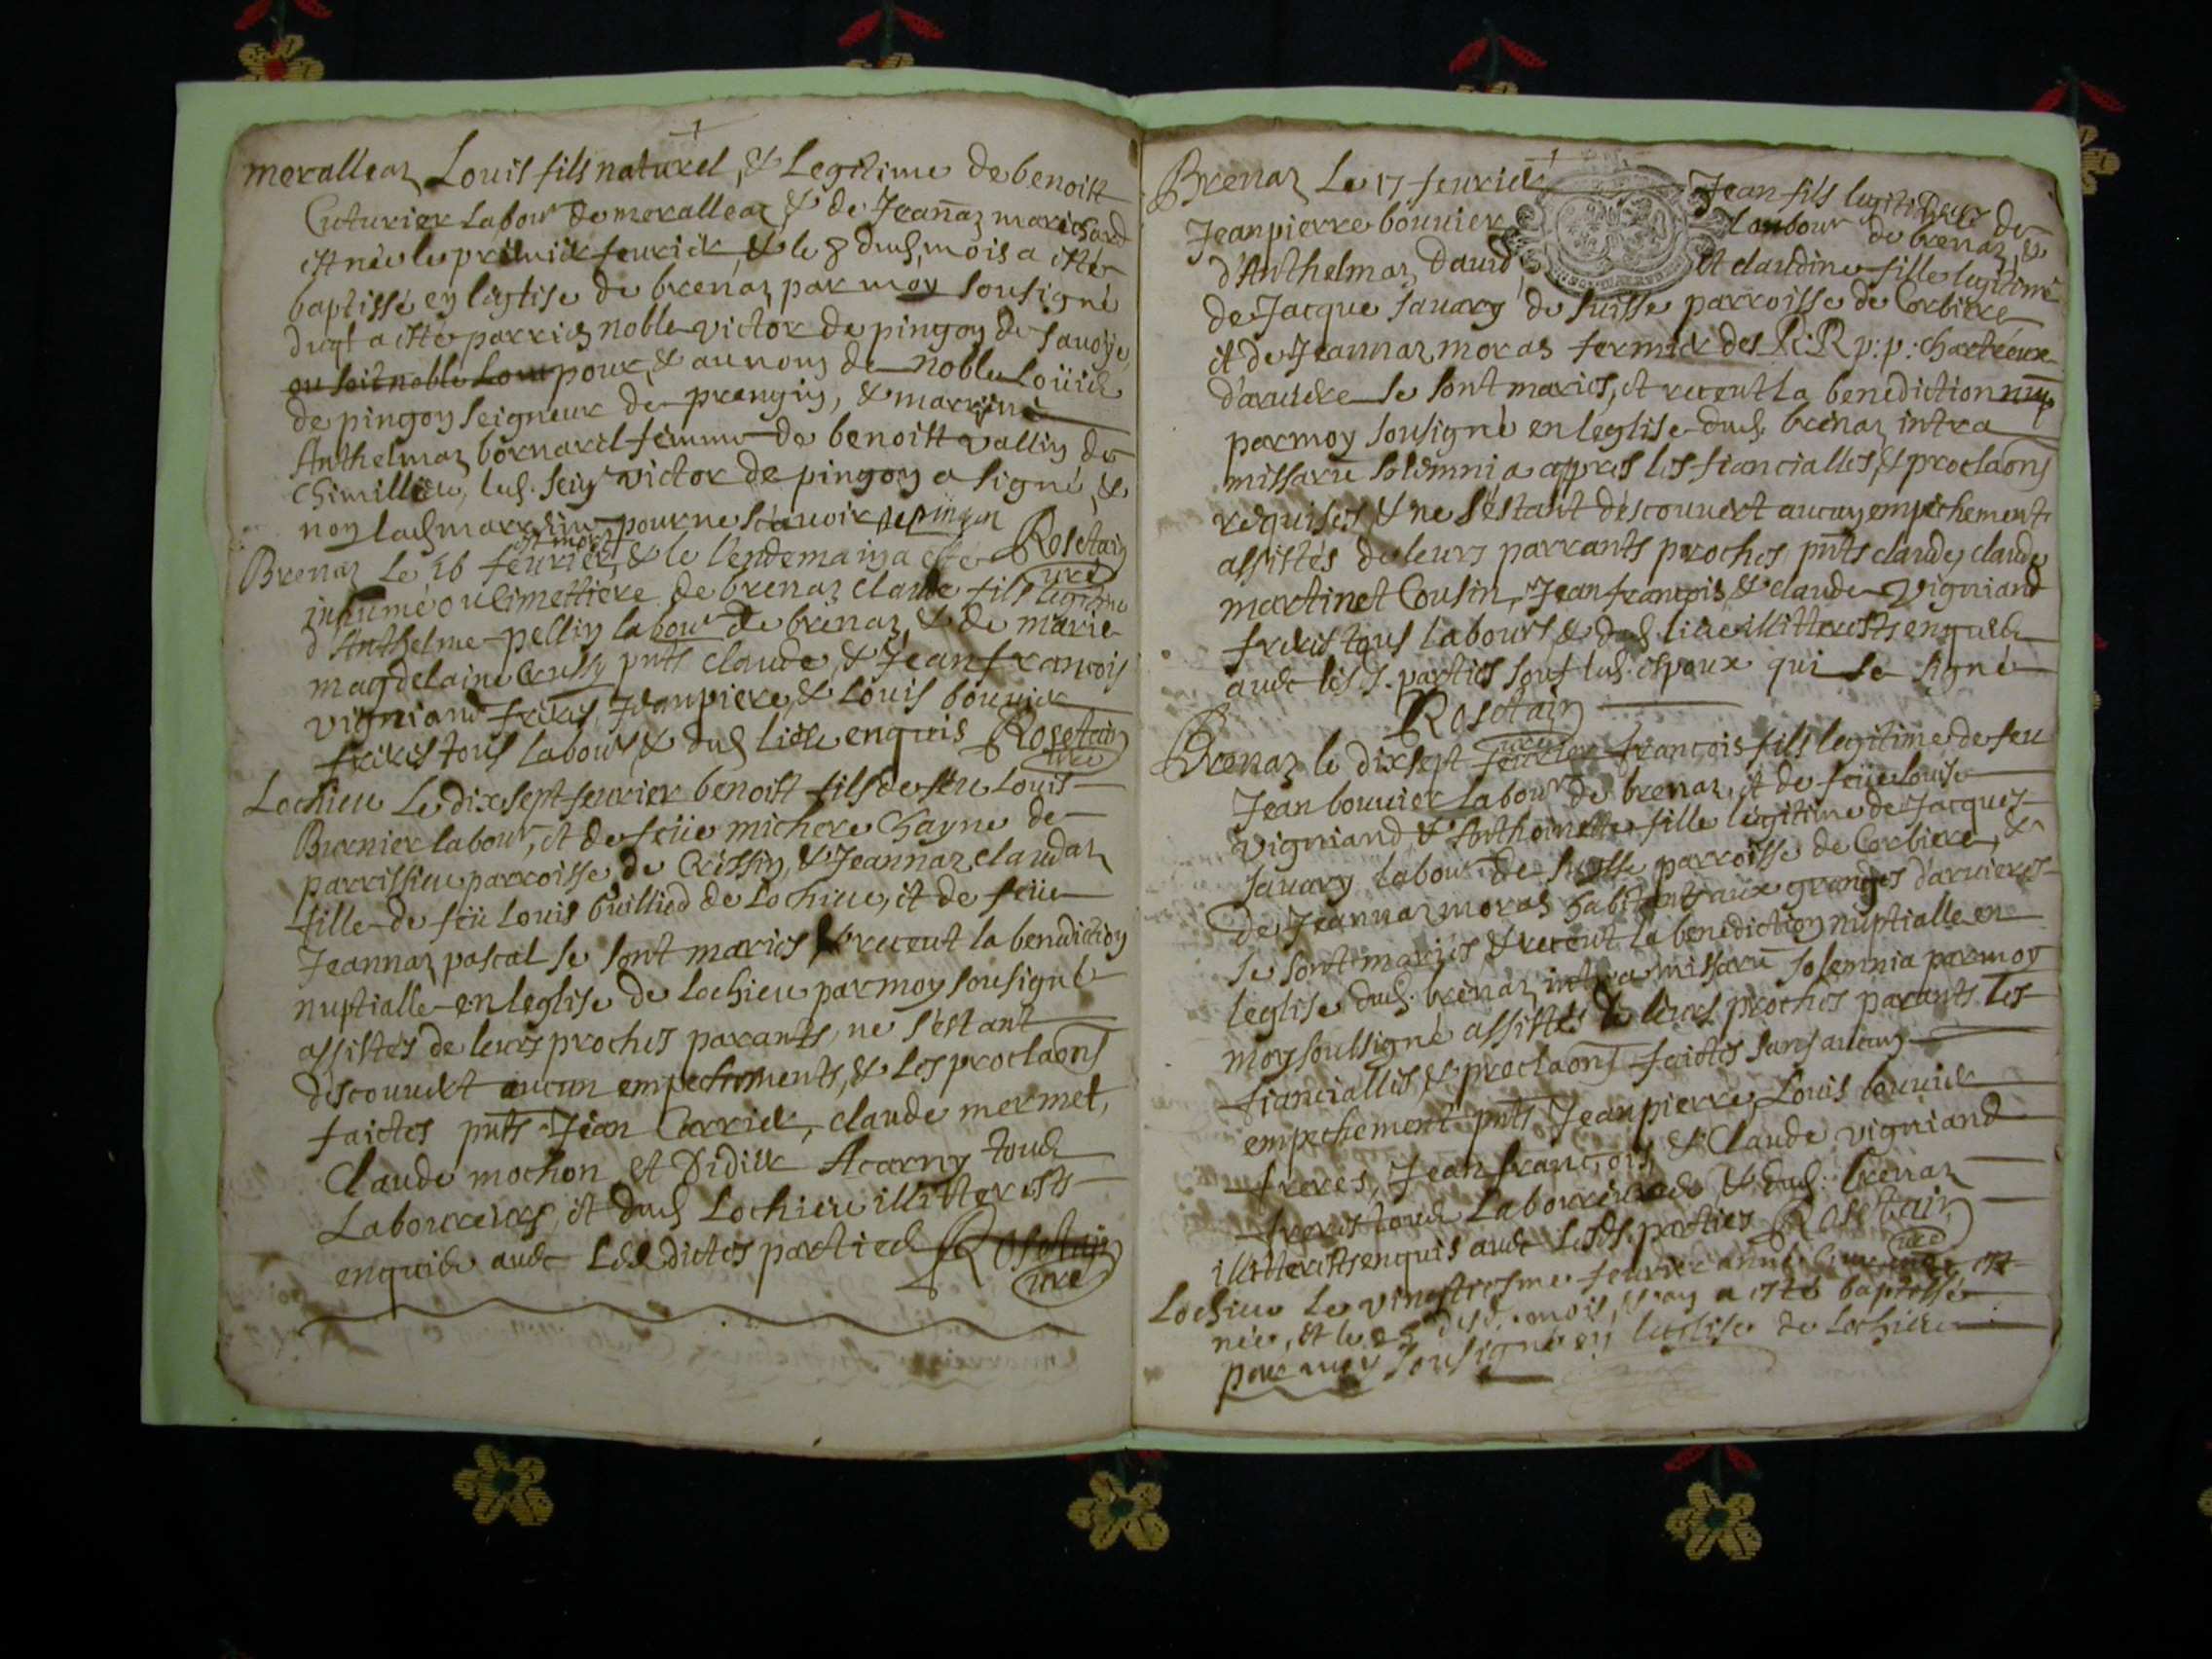 meralleaz Louis fils naturel, & Legitime de benoist
Cuturier labour de meralleaz & de Jeannaz marichard
est née le premier feurier & le 8 dud mois a esté
baptissé en l'eglise de brenaz par moy sousigné
duql a esté parrin noble victor de pingon de sauoye,
ou soit noble Loui pour, & au nom de noble Loüis
de pingon seigneur de prengin, & marrine
Anthelmaz bornard femme de benoist vallin de
Chimillieu, led. seigr victor de pingon a signé, &
non lad marrine pour ne scauoir De pingon
Rosetain
curé
Brenaz Le 16 feurier est mort & le lendemain a esté
inhumé ou cimettiere de brenaz claude fils legitime
d'Anthelme pellin labour de brenaz, & de marie
magdelaine Crussy pnts claude, & Jean françois
vigniand freres, Jeanpierre, & Louis bouuier
freres tous labours & dud lieu enquis Rosetain
curé
Lochieu Le dixsept feurier benoist fils de feu Louis
Burnier labour, et de feüe michere Chayne de
parrissieu parroisse de Crissin, & Jeannaz claudaz
fille de feü Louis Guillied de Lochieu, et de feüe
Jeannaz pascal se sont mariés & receut la benediction
nuptialle en leglise de lochieu par moy sousigné
assistés de leurs proches parants, ne s'estant
descouuert aucun empechements, & les proclaons
faictes pnts Jean Carrier, claude mermet,
Claude mochon et Didier Acarry tous
Laboureurs, et dud Lochieu illitterests
enquis auec Lesdictes parties Rosetain
curé
Brenaz Le 17 feurier Jean fils legitime de
Jeanpierre bouuier Labour de brenaz, &
d'Anthelmaz Dauid, et claudine fille legitime
de Jacque sauary de suisse parroisse de Corbiere
et de Jeannaz moras fermier des R:R p:p: chartreux
d'aruiere se sont mariés, et receut La benediction nup
par moy sousigné en leglise dud. brenaz intra
missaru solemnia appres les fiancialles, & proclaons
requises, & ne s'estant descouuert aucun empechement
assistés de leurs parrants proches pnts claude, claude
martinet Cousin, Jean françois & claude vigniand
freres tous labours & dud. lieu illitterests enquis
auec lesd. parties sauf led. espoux qui se signé
Rosetain
curé
Brenaz le dixsept feurier françois fils legitime de feu
Jean bouuier labour de brenaz et de feüe Louise
vigniand, & Anthoinette fille legitime de Jacques
sauary labour de suisse parroisse de Corbiere, &
de Jeannaz moras habitant aux granges d'aruieres
se sont mariés, & receut la benediction nuptialle en
leglise dud. brenaz intra missaru solemnia par moy
moy soussigné assistés de leurs proches parants les
fiancialles, & proclaons faictes sans aucun
empechement pnts Jeanpierre, Louis bouuier
freres, Jean françois, & Claude vigniand
freres tous Laboureurs & dud: brenaz
illitterests enquis auec lesds. parties Rosetain
curé
Lochieu Le vingtiesme feurier année est
née, et le 25 desd. mois, & an a esté baptissé
par moy sousigné en leglise de Lochieu